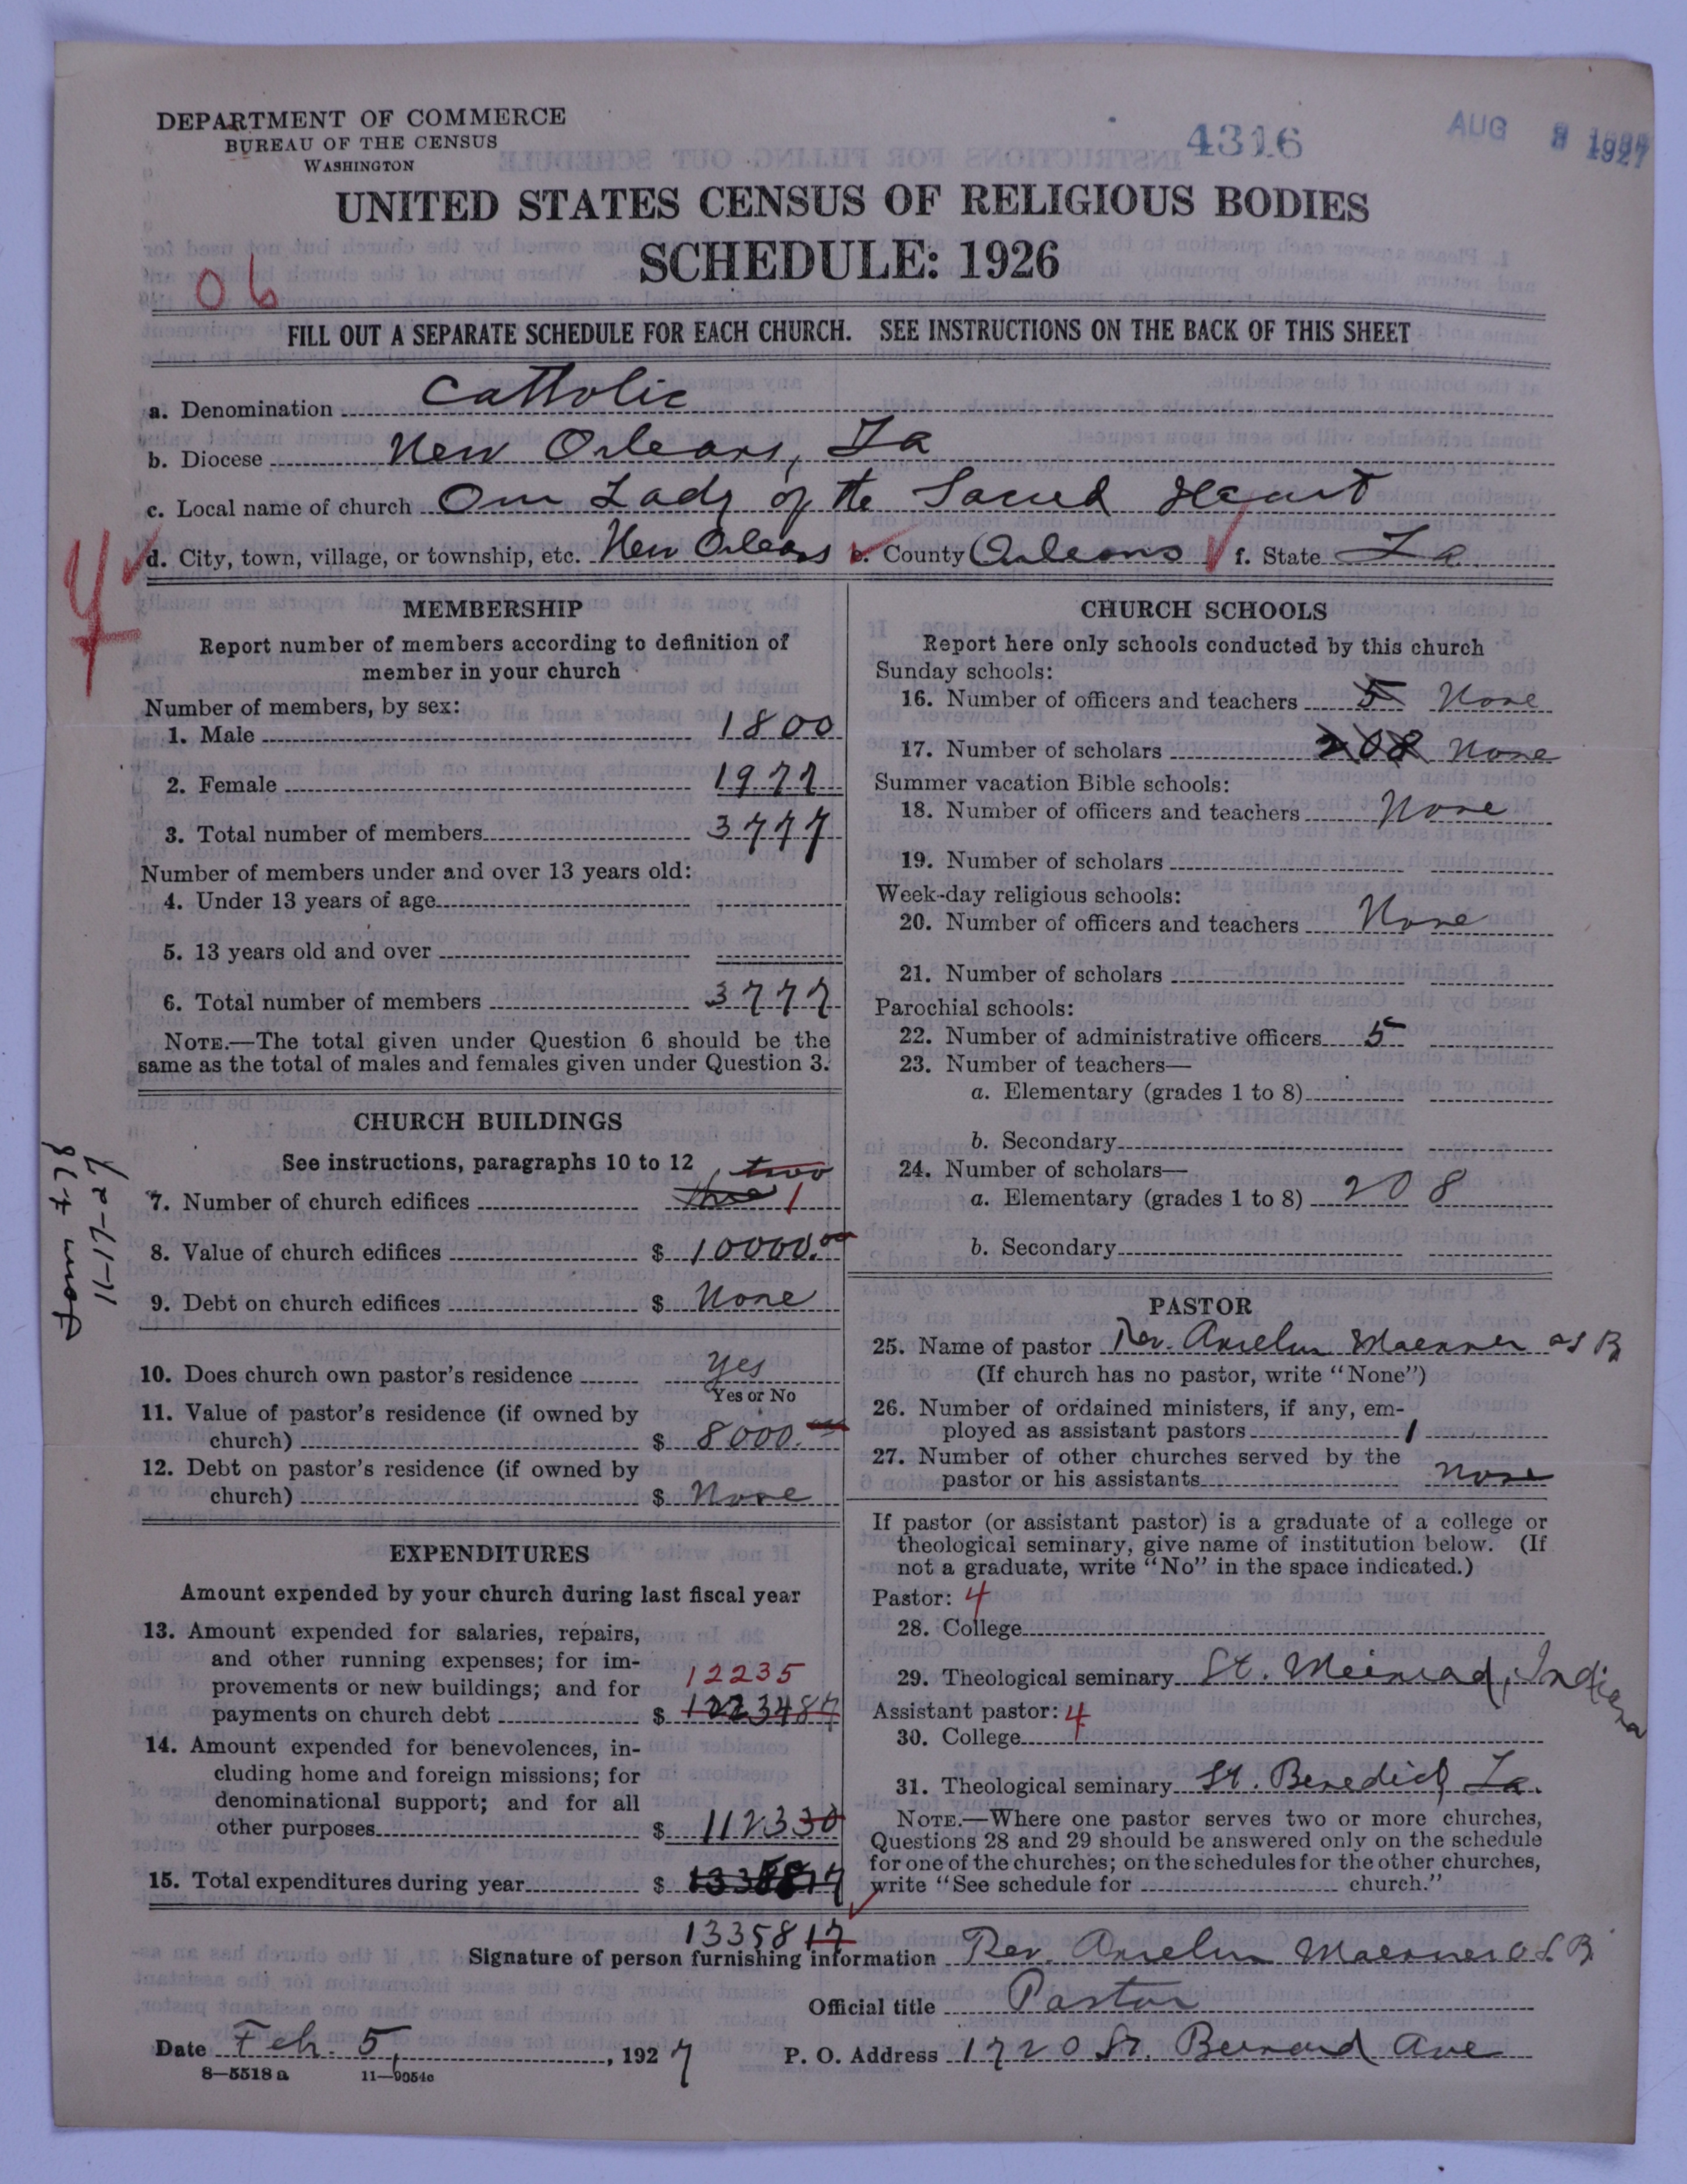 DEPARTMENT OF COMMERCE
BUREAU OF THE CENSUS
WASHINGTON
4316
AUG 8 1927
UNITED STATES CENSUS OF RELIGIOUS BODIES
SCHEDULE: 1926
06
FILL OUT A SEPARATE SCHEDULE FOR EACH CHURCH. SEE INSTRUCTIONS ON THE BACK OF THIS SHEET
a. Denomination Catholic
b. Diocese New Orleans, La
c. Local name of church Our Lady of the Sacred Heart
d. City, town, village, or township, etc. New Orleans e. County Orleans f. State La.
MEMBERSHIP
Report number of members according to definition of
member in your church
Number of members, by sex:
1. Male 1800
2. Female 1977
3. Total number of members 3777
Number of members under and over 13 years old:
4. Under 13 years of age
5. 13 years old and over
6. Total number of members 3777
NOTE.—The total given under Question 6 should be the
same as the total of males and females given under Question 3.
CHURCH BUILDINGS
See instructions, paragraphs 10 to 12
two
7. Number of church edifices three 1
8. Value of church edifices $ 10000.00
9. Debt on church edifices $ None
10. Does church own pastor's residence yes
Yes or No
11. Value of pastor's residence (if owned by
church) $ 8000.00
12. Debt on pastor's residence (if owned by
church) $ None
Form 478
11-17-27
EXPENDITURES
Amount expended by your church during last fiscal year
13. Amount expended for salaries, repairs,
and other running expenses; for im-
provements or new buildings; and for
12235
payments on church debt $ 1223487
14. Amount expended for benevolences, in-
cluding home and foreign missions; for
denominational support; and for all
other purposes $ 112330
15. Total expenditures during year $
1335817
CHURCH SCHOOLS
Report here only schools conducted by this church
Sunday schools:
16. Number of officers and teachers 5 None
17. Number of scholars 208 None
Summer vacation Bible schools:
18. Number of officers and teachers None
19. Number of scholars
Week-day religious schools:
20. Number of officers and teachers None
21. Number of scholars
Parochial schools:
22. Number of administrative officers 5
23. Number of teachers—
a. Elementary (grades 1 to 8)
b. Secondary
24. Number of scholars—
a. Elementary (grades 1 to 8) 208
b. Secondary
PASTOR
25. Name of pastor Rev. Anselm Maenner OSB
(If church has no pastor, write "None")
26. Number of ordained ministers, if any, em-
ployed as assistant pastors 1
27. Number of other churches served by the
pastor or his assistants None
If pastor (or assistant pastor) is a graduate of a college or
theological seminary, give name of institution below. (If
not a graduate, write "No" in the space indicated.)
Pastor: 4
28. College
29. Theological seminary St. Meinrad, Indiana
Assistant pastor: 4
30. College
31. Theological seminary St. Benedict La.
NOTE.—Where one pastor serves two or more churches,
Questions 28 and 29 should be answered only on the schedule
for one of the churches; on the schedules for the other churches,
write "See schedule for church."
Signature of person furnishing information Rev. Anselm Maenner O.S.B.
Official title Pastor
Date Feb. 5, 1927
P. O. Address 1720 St. Bernard Ave
8—5518 a 11—9054c